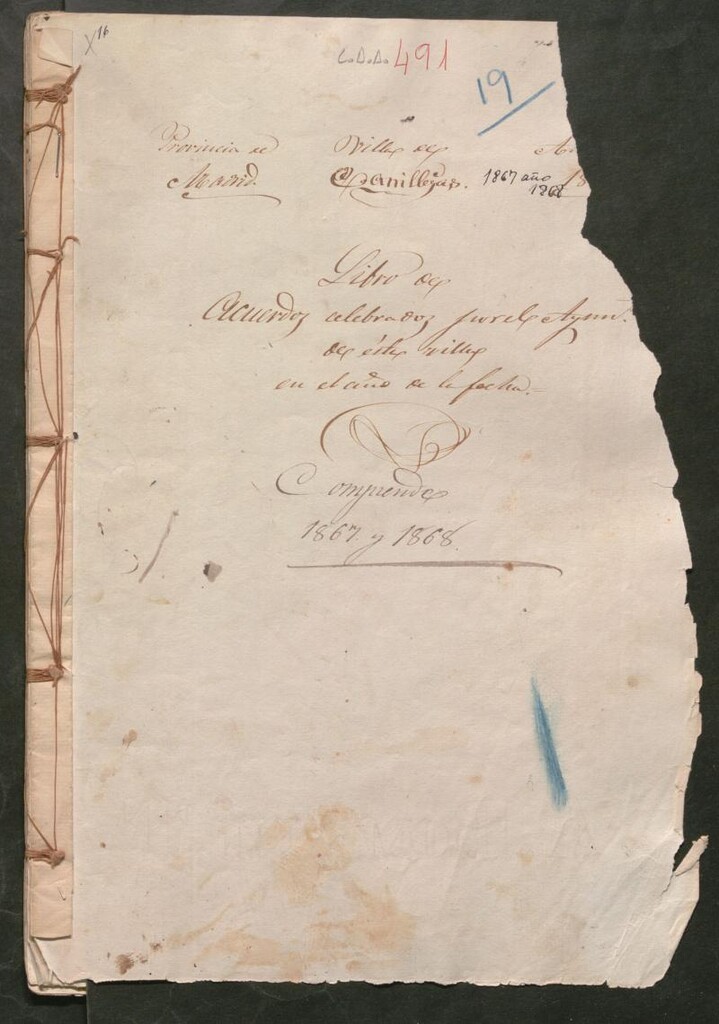 X 16
L.D.D. 491
19
Provincia de Villa de
Madrid. Canillejas. 1867 año
1868
Libro de
Acuerdos celebrados por el Ayunt.
de ésta villa
en el año de la fecha.=
Comprende
1867 y 1868.